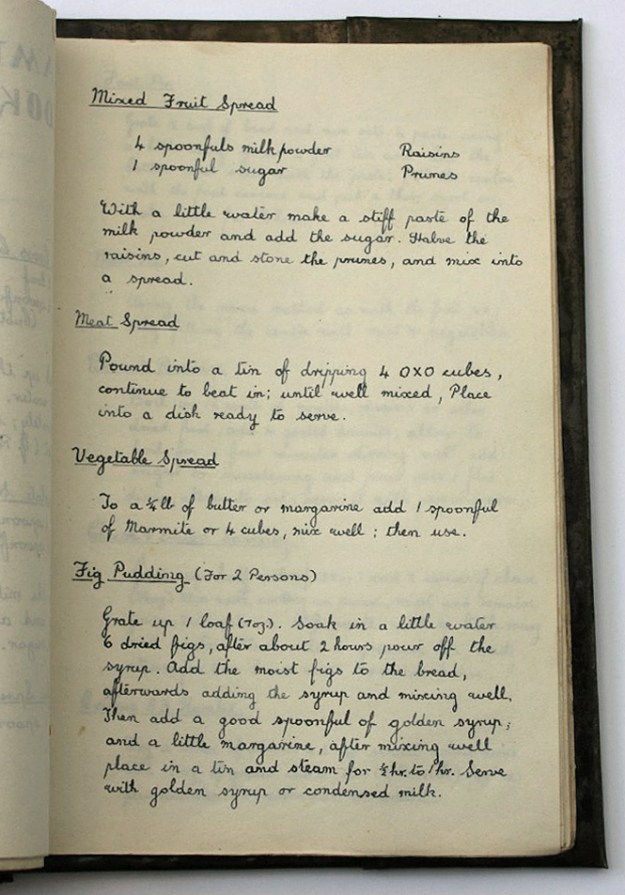 Mixed Fruit Spread
4 spoonfuls milk powder Raisins
1 spoonful sugar Prunes
With a little water make a stiff paste of the
milk powder and add the sugar. Halve the
raisins, cut and stone the prunes, and mix into
a spread.
Meat Spread
Pound into a tin of dripping 4 OXO cubes,
continue to beat in; until well mixed, Place
into a dish ready to serve.
Vegetable Spread
To a ¼ lb of butter or margarine add 1 spoonful
of Marmite or 4 cubes, mix well; then use.
Fig Pudding (For 2 Persons)
Grate up 1 loaf (7oz). Soak in a little water
6 dried figs, after about 2 hours pour off the
syrup. Add the moist figs to the bread,
afterwards adding the syrup and mixing well.
Then add a good spoonful of golden syrup;
and a little margarine, after mixing well
place in a tin and steam for ½hr. to 1hr. Serve
with golden syrup or condensed milk.